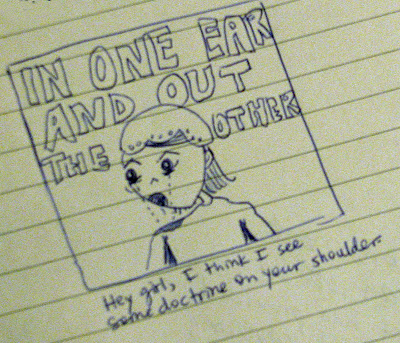 IN ONE EAR
AND OUT
THE OTHER
Hey girl, I think I see
some doctrine on your shoulder.